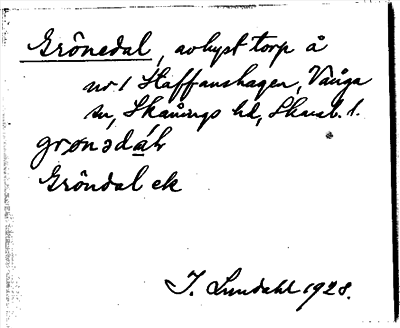 Grönedal, avhyst torp å
nr 1 Staffanshagen, Vånga
sn, Skånings hd, Skarab. l.
grønədáɫ
Gröndal ek
I. Lundahl 1928.